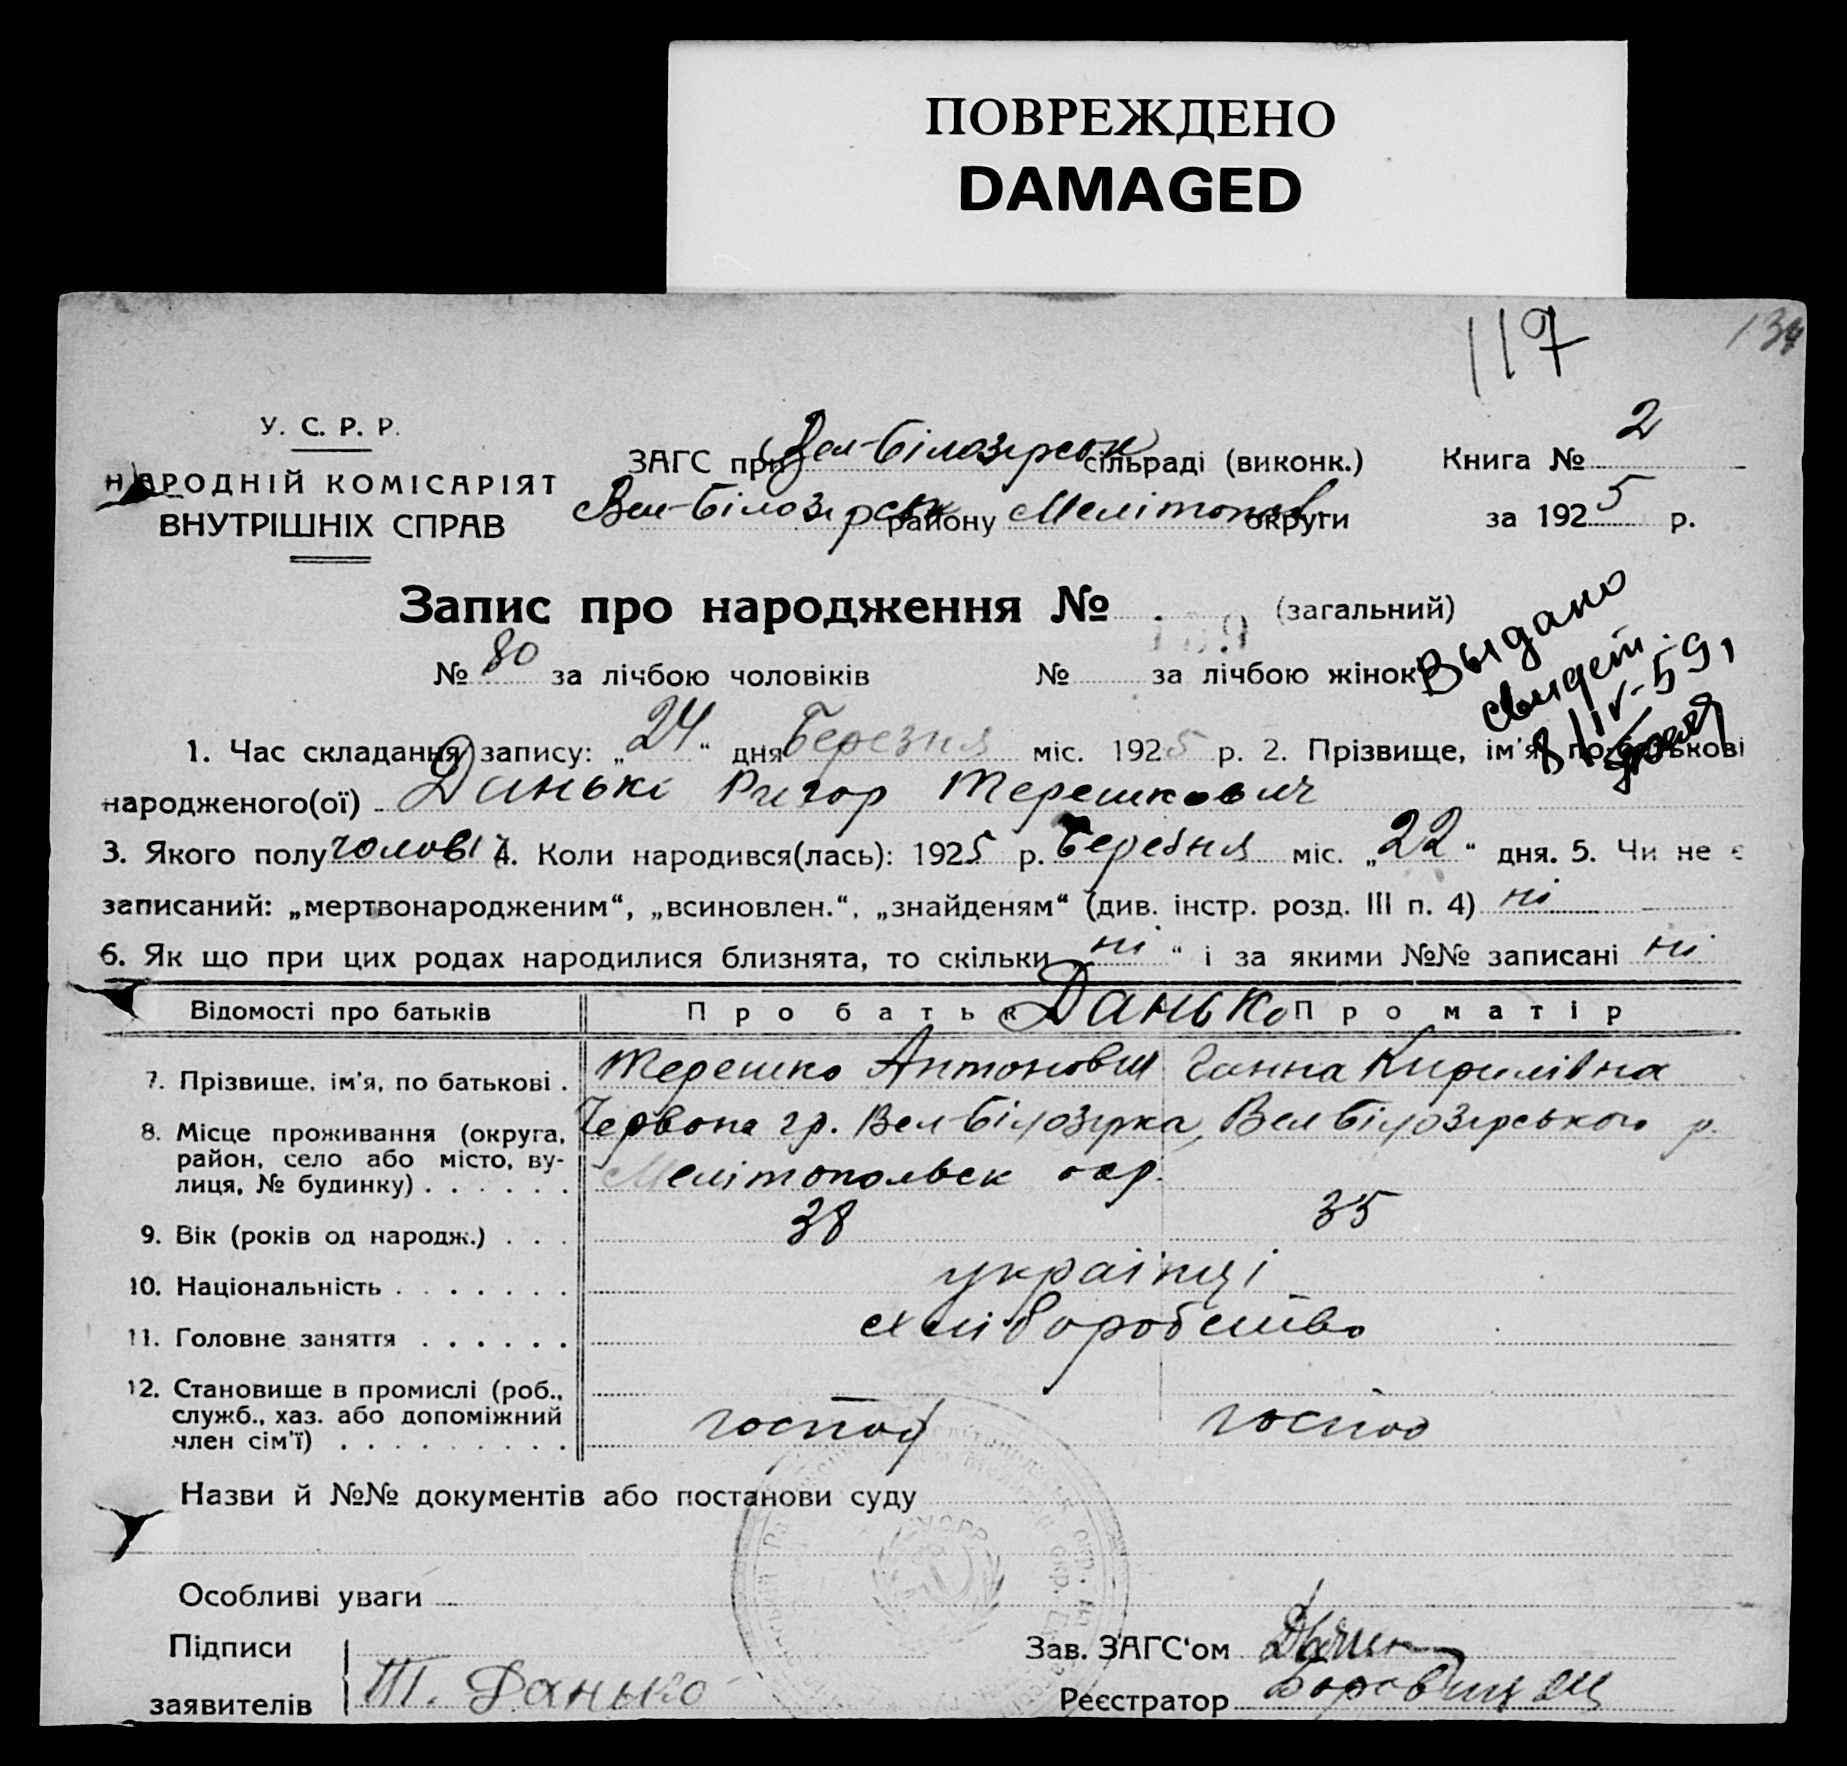 ПОВРЕЖДЕНО
DAMAGED
117
134
У. С. Р. Р.
НАРОДНІЙ КОМІСАРІЯТ
ВНУТРІШНІХ СПРАВ
ЗАГС при Вел-Білозерськ сільраді (виконк.)
Вел-Білозерськ району Мелітопол округи
Книга № 2
за 1925 р.
Запис про народження № (загальний)
№ 80 за лічбою чоловіків № за лічбою жінок
Выдано
свидет.
8/IV-59
1. Час складання запису: „24“ дня Березня міс. 1925 р. 2. Прізвище, ім'я, по батькові
народженого(ої) Данькі Ригор Терешкович
3. Якого полу чолові 4. Коли народився(лась): 1925 р. Березня міс. „22“ дня. 5. Чи не є
записаний: „мертвонародженим“, „всиновлен.“, „знайденям“ (див. інстр. розд. III п. 4) ні
6. Як що при цих родах народилися близнята, то скільки ні “ і за якими №№ записані ні
Відомості про батьків Про батьк Данько Про матір
7. Прізвище, ім'я, по батькові . Терешко Антонович Ганна Кирилівна
8. Місце проживання (округа, Червона гр. Вел-Білозірка, Вел Білозерського р.
район, село або місто, ву-
лиця, № будинку) . . . . . . Мелітопольск окр.
9. Вік (років од народж.) . . . 38 35
10. Національність . . . . . . . українці
11. Головне заняття . . . . . . хліборобство
12. Становище в промислі (роб.,
служб., хаз. або допоміжний
член сім'ї) . . . . . . . . . господ господ
Назви й №№ документів або постанови суду
Особливі уваги
Підписи
заявителів Т. Данько
Зав. ЗАГС'ом
Реєстратор